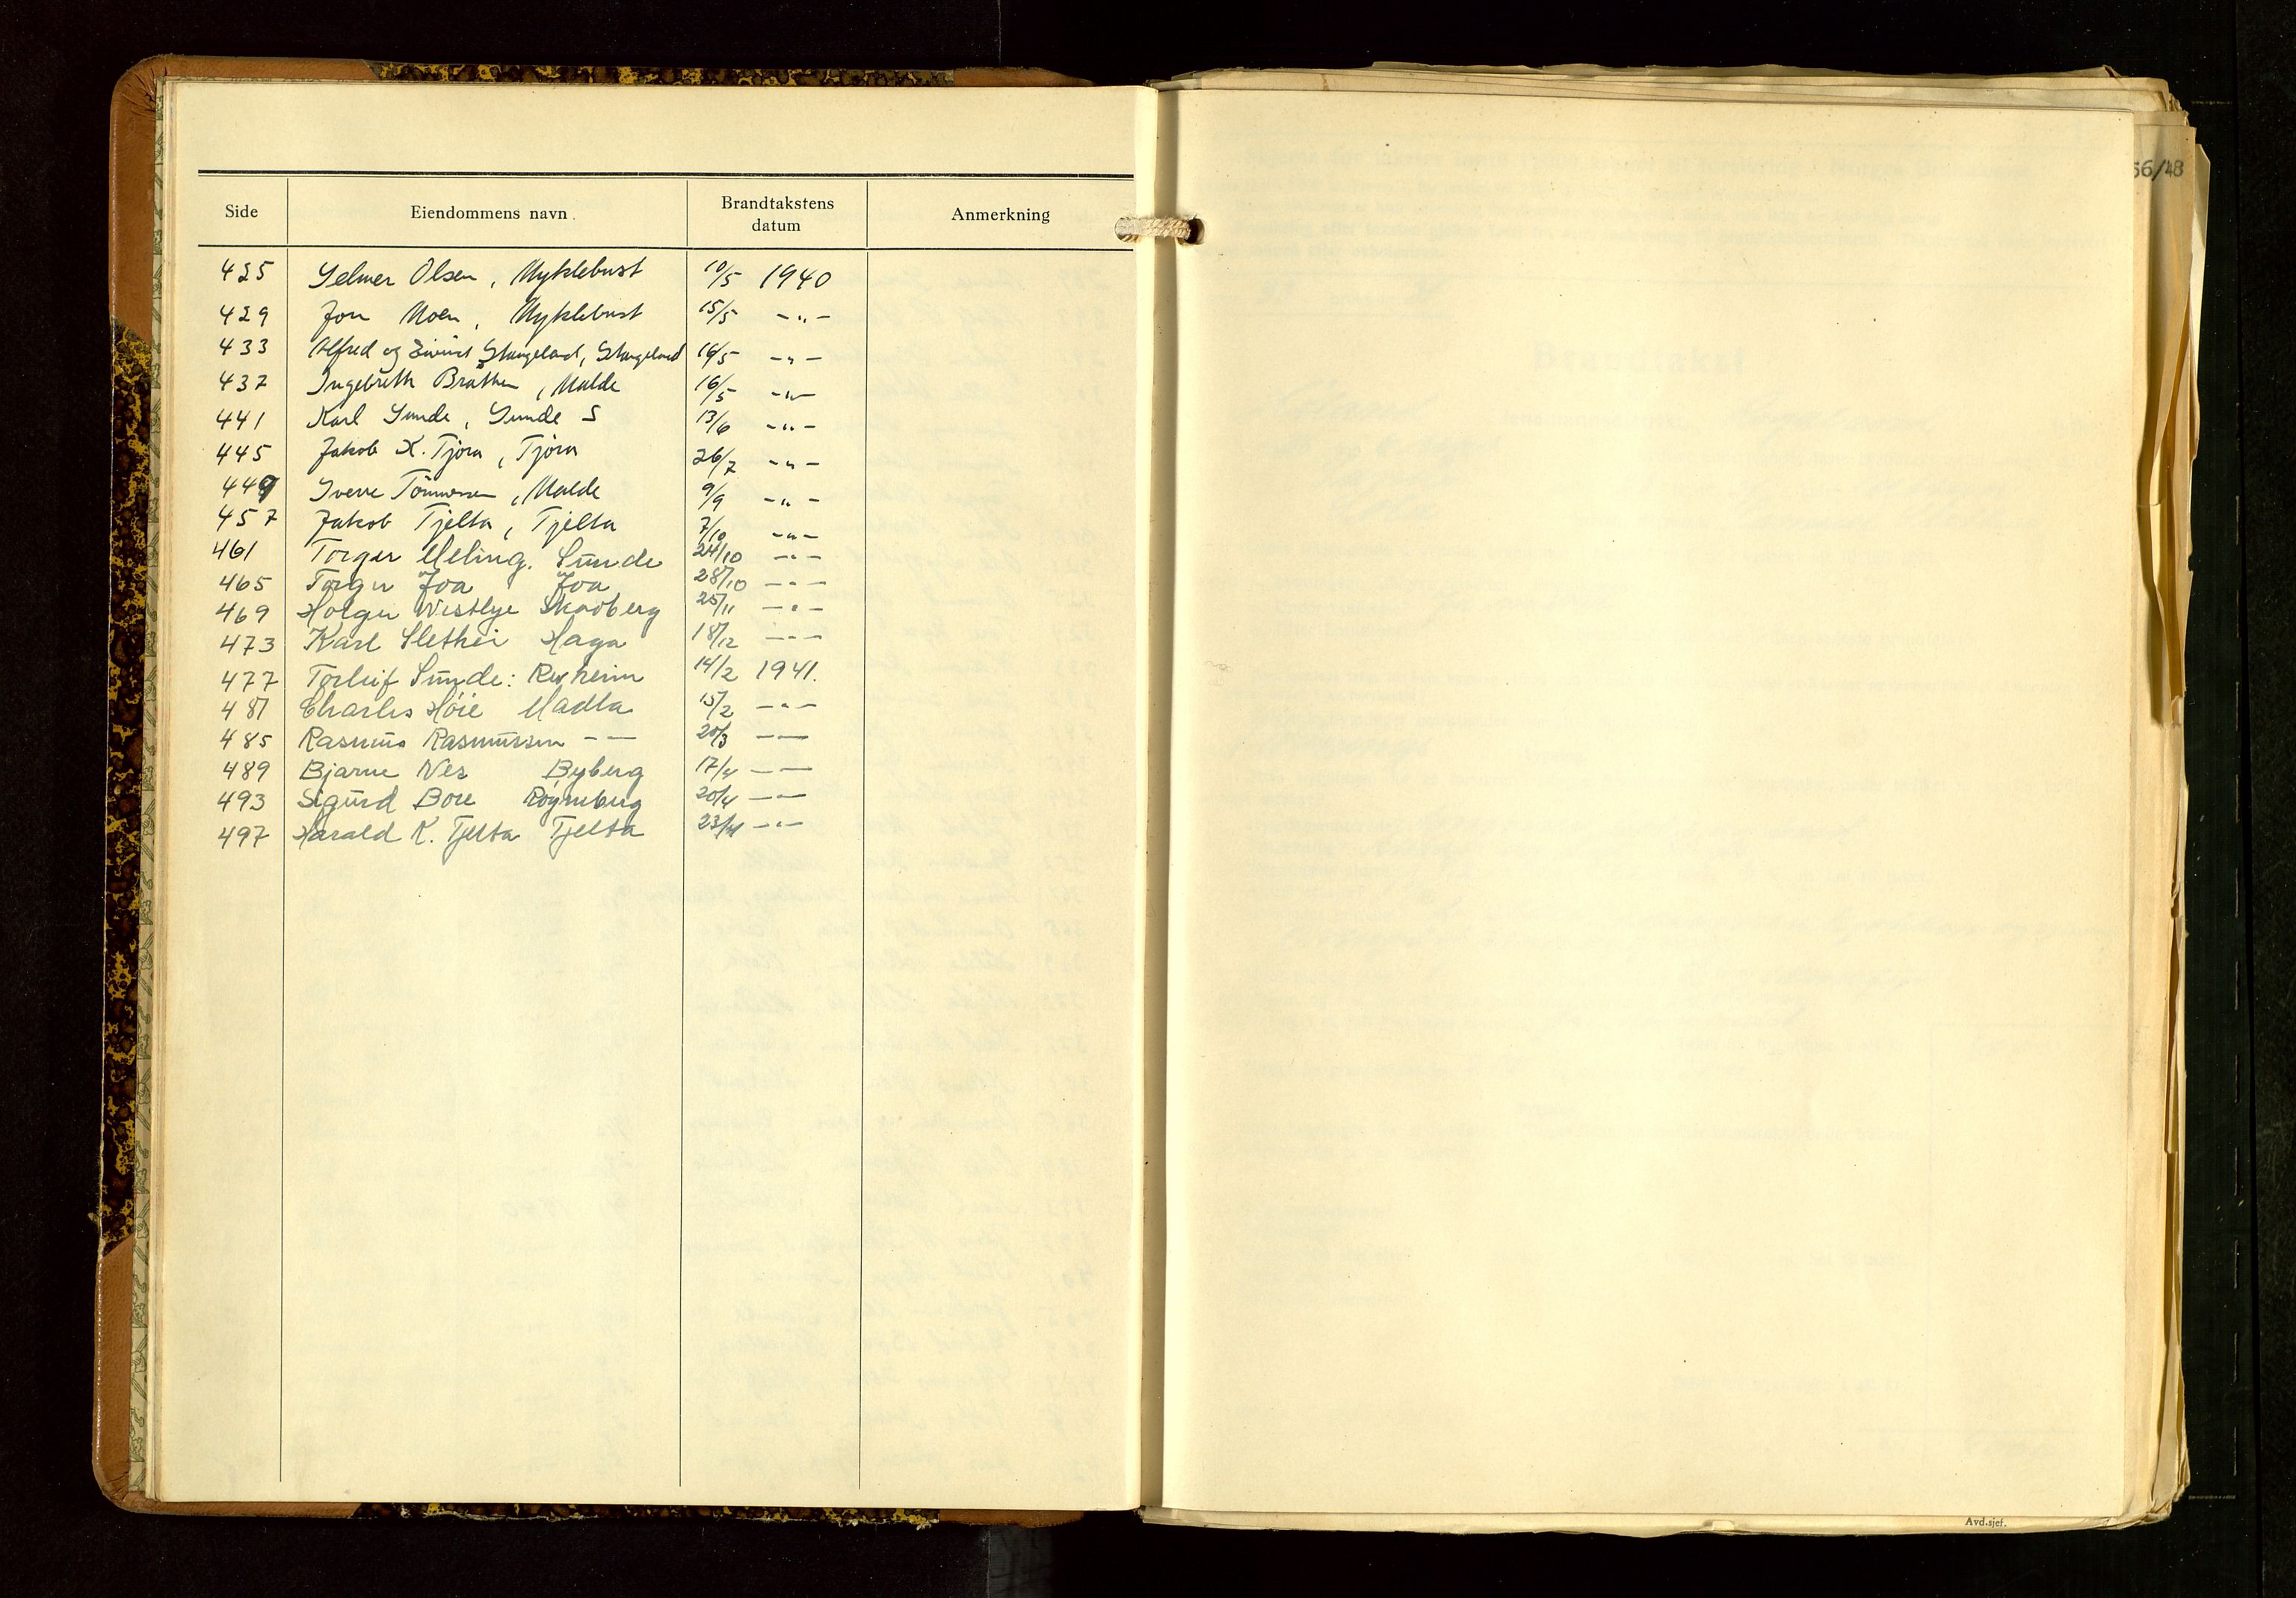 Side Eiendommens navn Brandtakstens datum Anmerkning
425 Selmer Olsen, Myklebust 10/5 1940
429 Jon Moen, Myklebust 15/5 -"-
433 Alfred og Eivind Stangeland, Stangeland 16/5 -"-
437 Ingebreth Bråthen, Malde 16/5 -"-
441 Karl Sunde, Sunde S 13/6 -"-
445 Jakob K. Tjora, Tjora 26/7 -"-
449 Sverre Tönnesen, Malde 9/9 -"-
457 Jakob Tjelta, Tjelta 7/10 -"-
461 Torger Meling. Sunde 24/10 -"-
465 Torger Joa Joa 28/10 -"-
469 Holger Westlye Skadberg 25/11 -"-
473 Karl Slethei Haga 18/12 -"-
477 Torleif Sunde: Revheim 14/2 1941.
481 Charles Höie Madla 15/2 -"-
485 Rasmus Rasmussen -- 20/3 -"-
489 Bjarne Nes Byberg 17/4 -"-
493 Sigurd Bore Røyneberg 20/4 -"-
497 Harald K. Tjelta Tjelta 23/4 -"-
56/48
Avd.sjef.